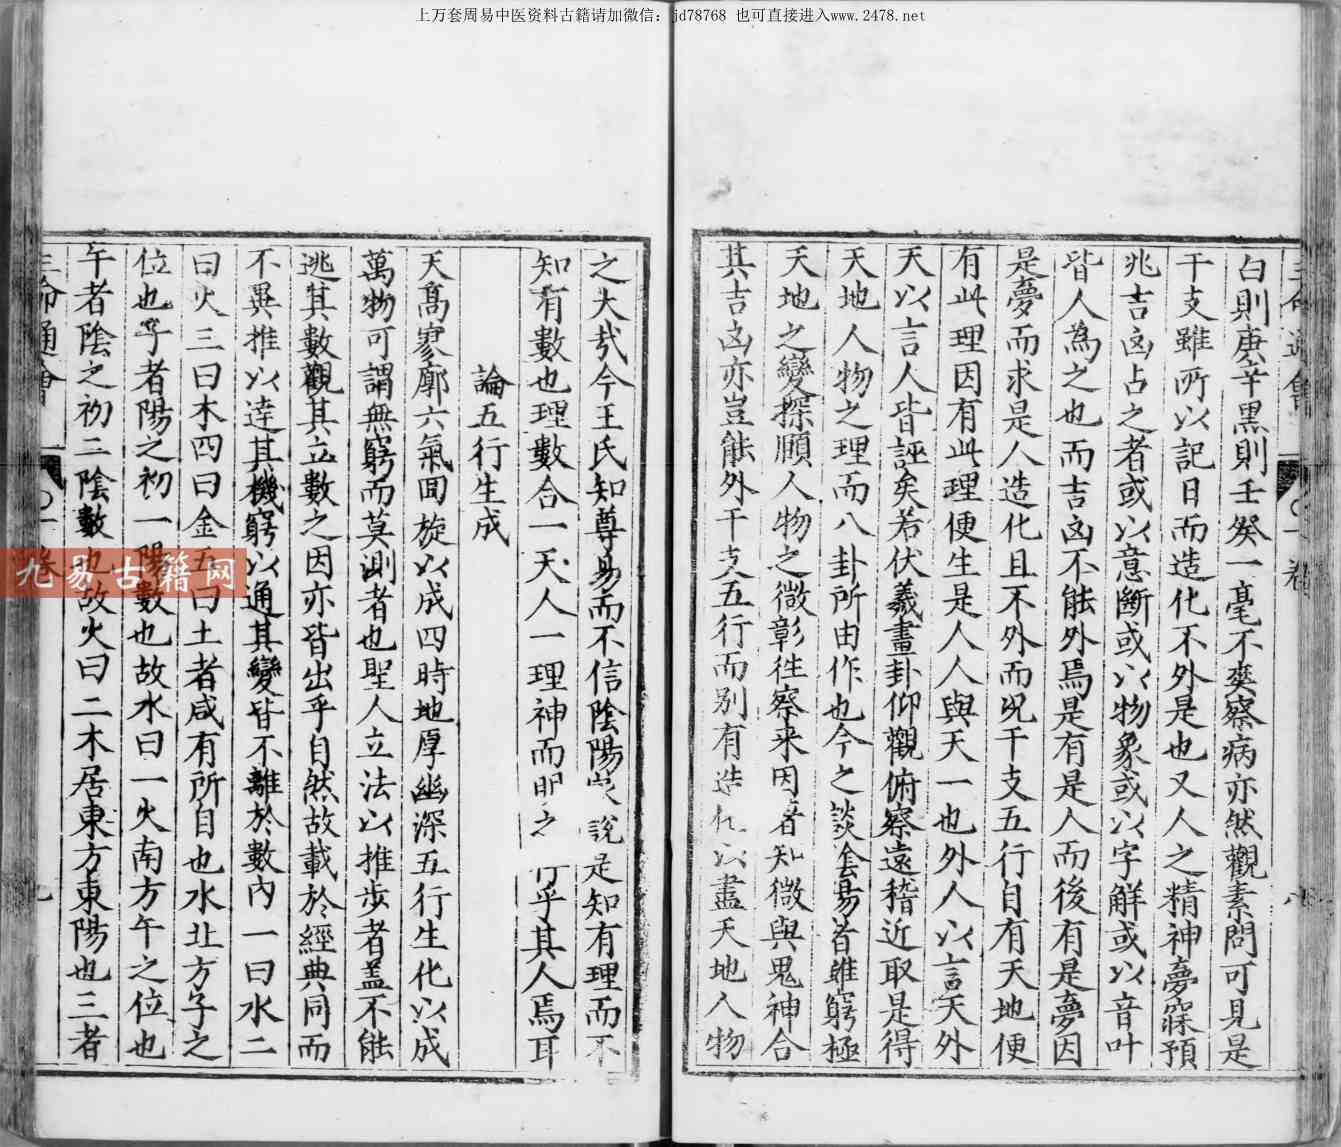 上万套周易中医资料古籍请加微信：jd78768 也可直接进入www.2478.net
白則庚辛黑則壬癸一毫不爽察病亦然觀素問可見是
干支雖所以記日而造化不外是也又人之精神夢寐預
兆吉凶占之者或以意斷或以物象或以字解或以音叶
皆人為之也而吉凶不能外焉是有是人而後有是夢因
是夢而求是人造化且不外而况干支五行自有天地便
有此理因有此理便生是人人與天一也外人以言天外
天以言人皆誣矣若伏羲畫卦仰觀俯察遠稽近取是得
天地人物之理而八卦所由作也今之談陰昜者雖窮極
天地之變探賾人物之微彰徃察来因著知微與鬼神合
其吉凶亦豈能外干支五行而别有造化以盡天地人物
之大哉今王氏知尊易而不信陰陽家說是知有理而不
知有數也理數合一天人一理神而明之 乎其人焉耳
論五行生成
天髙寥廓六氣囬旋以成四時地厚幽深五行生化以成
萬物可謂無窮而莫測者也聖人立法以推步者盖不能
逃其數觀其立數之因亦皆出乎自然故載於經典同而
不異推以達其機窮以通其變皆不離於數内一曰水二
曰火三曰木四曰金五曰土者咸有所自也水北方子之
位也子者陽之初一陽數也故水曰一火南方午之位也
午者陰之初二陰數也故火曰二木居東方東陽也三者
三命通會
九易古籍网